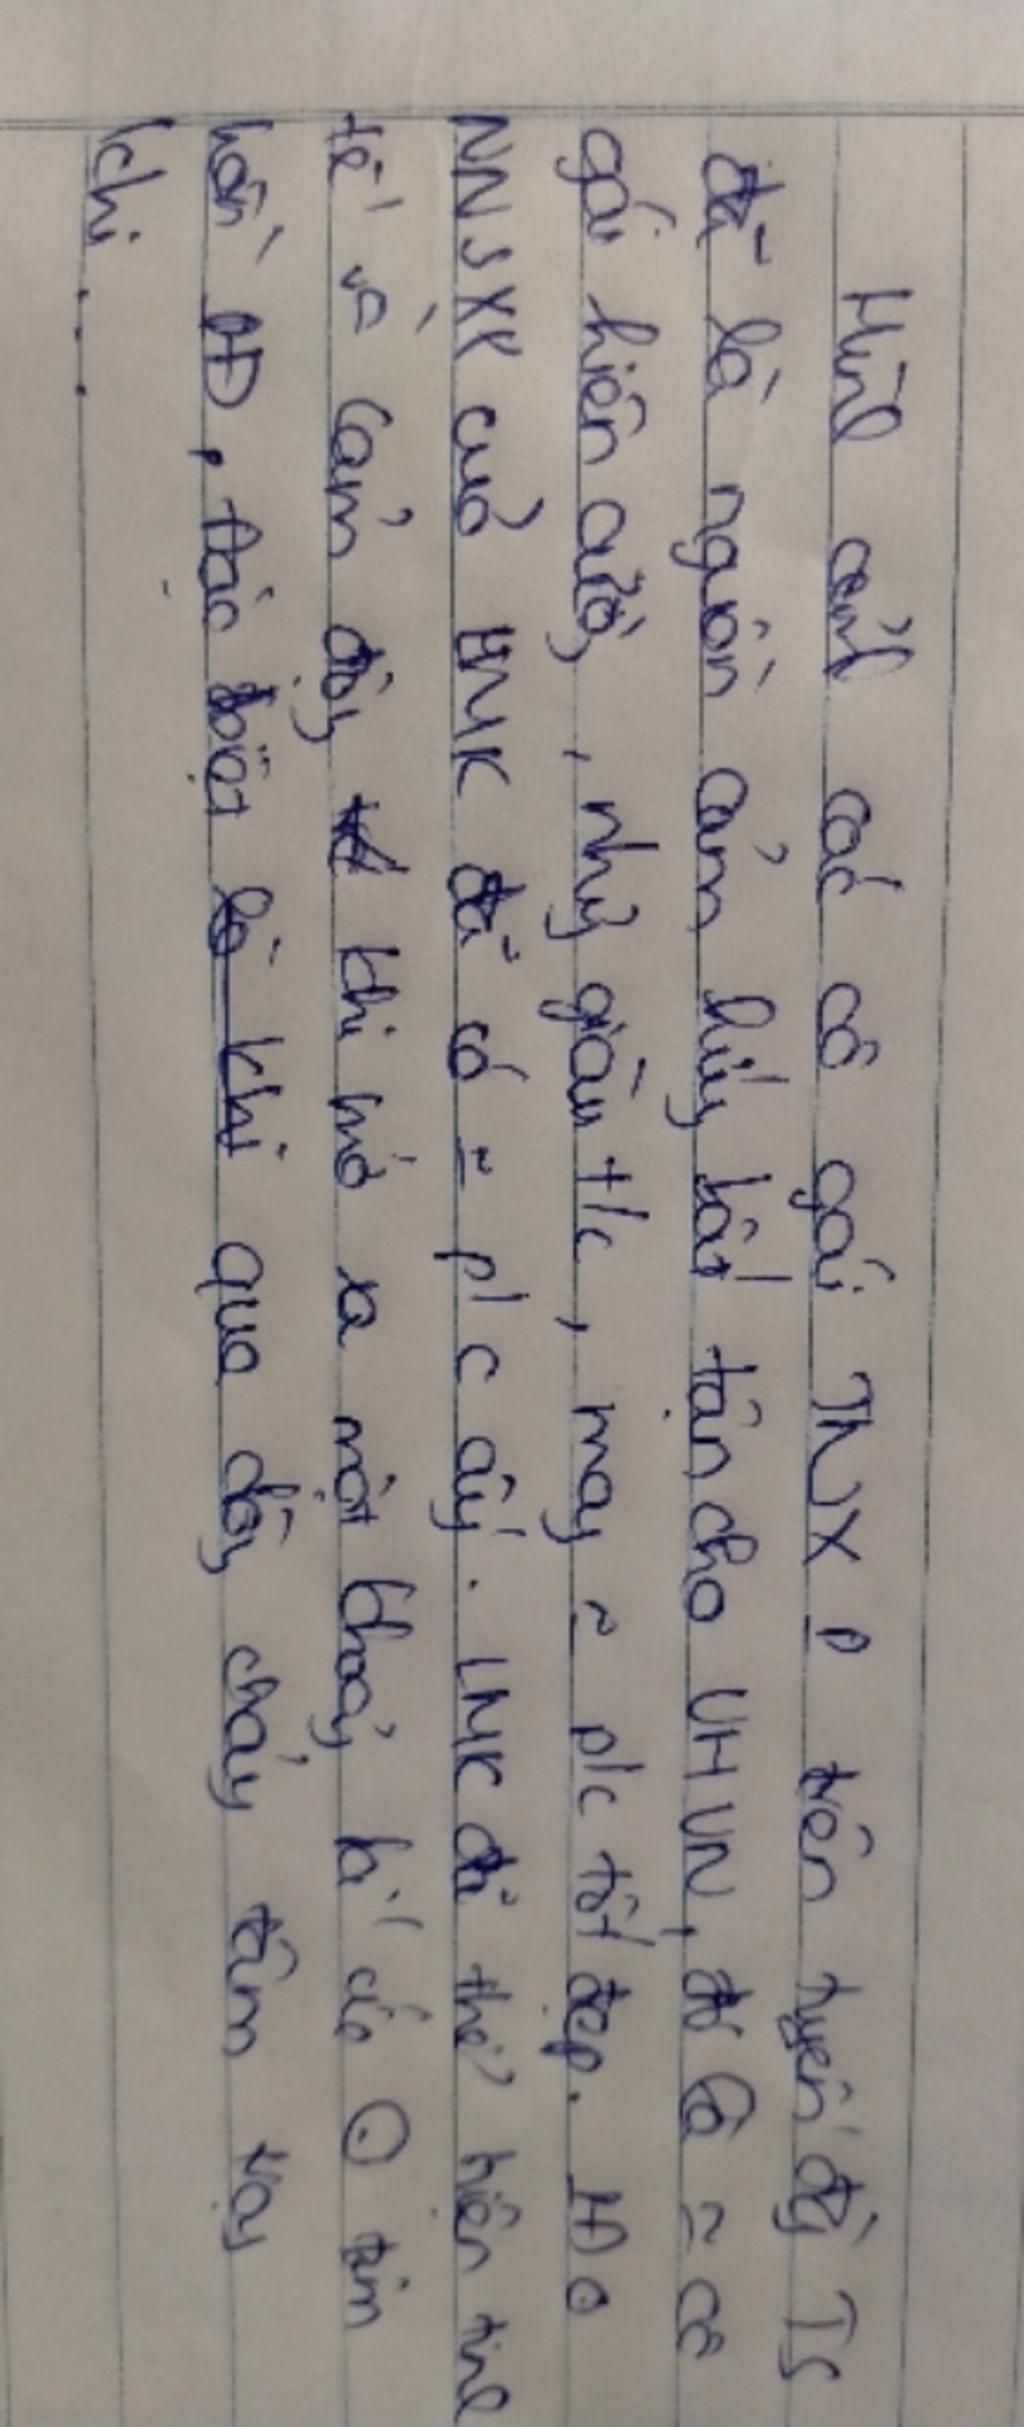 Hình ảnh các cô gái TNXP trên tuyến đg TS
đã là nguồn cảm hứng bất tận cho VHVN, đó là ~ cô
gái hiên ách, nhg giàu t/c, may ~ p/c tốt đẹp. H/a
NNSXX của LMK đã có ~ p/c ấy. LMK đã thể hiện tinh
tế và cảm động khi mở ra một khoảng kí ức ở tâm
hồn PĐ, đặc biệt là khi qua dòng chảy tâm